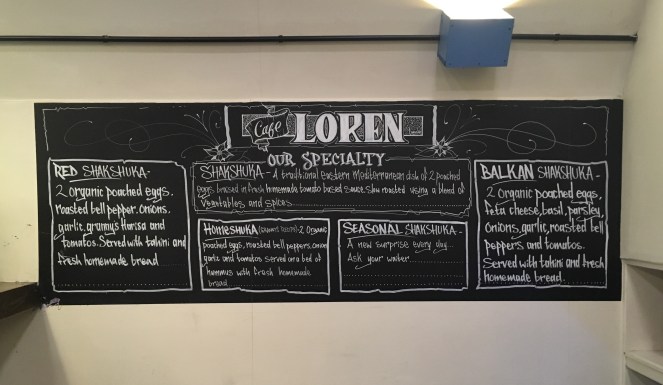 Cafe LOREN
OUR SPECIALTY
RED SHAKSHUKA-
2 organic poached eggs.
roasted bell pepper. onions.
garlic, grannys Harisa and
tomatos. Served with tahini and
fresh homemade bread
SHAKSHUKA- A traditional Eastern Mediterranean dish of 2 poached
eggs, braised in fresh homemade tomato based sauce, slow roasted using a blend of
vegetables and spices
HOMESHUKA 2 Organic
poached eggs, roasted bell peppers, onion
garlic and tomatos served on a bed of
hummus with fresh homemade
bread
SEASONAL SHAKSHUKA-
A new surprise every day...
Ask your waiter
BALKAN SHAKSHUKA-
2 organic poached eggs,
feta cheese, basil, parsley,
onions, garlic, roasted bell
peppers and tomatos.
Served with tahini and fresh
homemade bread